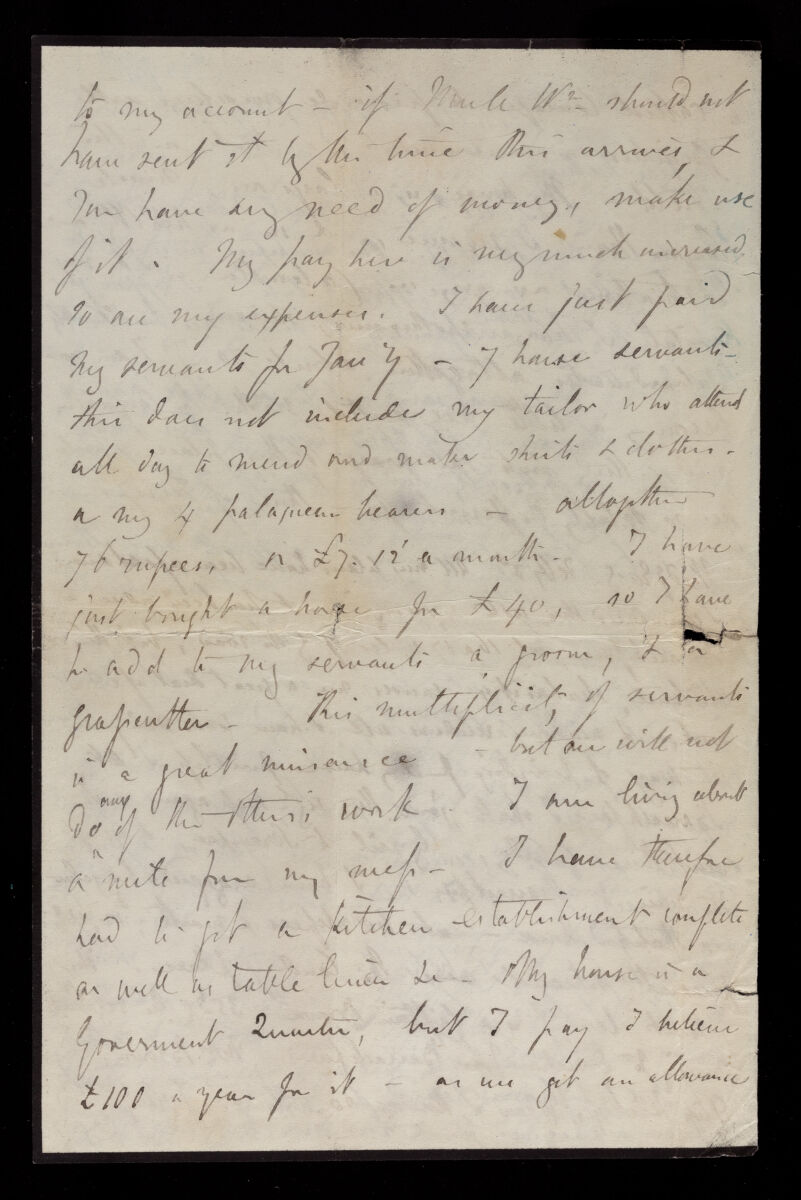 to my account – if Uncle Wm should not
have sent it by the time this arrives, &
you have any need of money, make use
of it. My pay here is very much increased,
so are my expenses. I have just paid
my servants for Jany – 7 house servants –
this does not include my tailor who attend
all day to mend and make shirts & clothes –
or my 4 palaqueen bearers – altogether
76 rupees, or £7. 12 a month. I have
just bought a horse for £40, so I have
to add to my servants a groom, & a
grasscutter – This multiplicity of servants
is a great nuisance – but one will not
do any of the others work. I am living about
a mile from my mess – I have therefore
had to get a kitchen establishment complete
as well as table linen &c – My house is a
Goverment Quarter, but I pay I believe
£100 a year for it – as we get an allowance